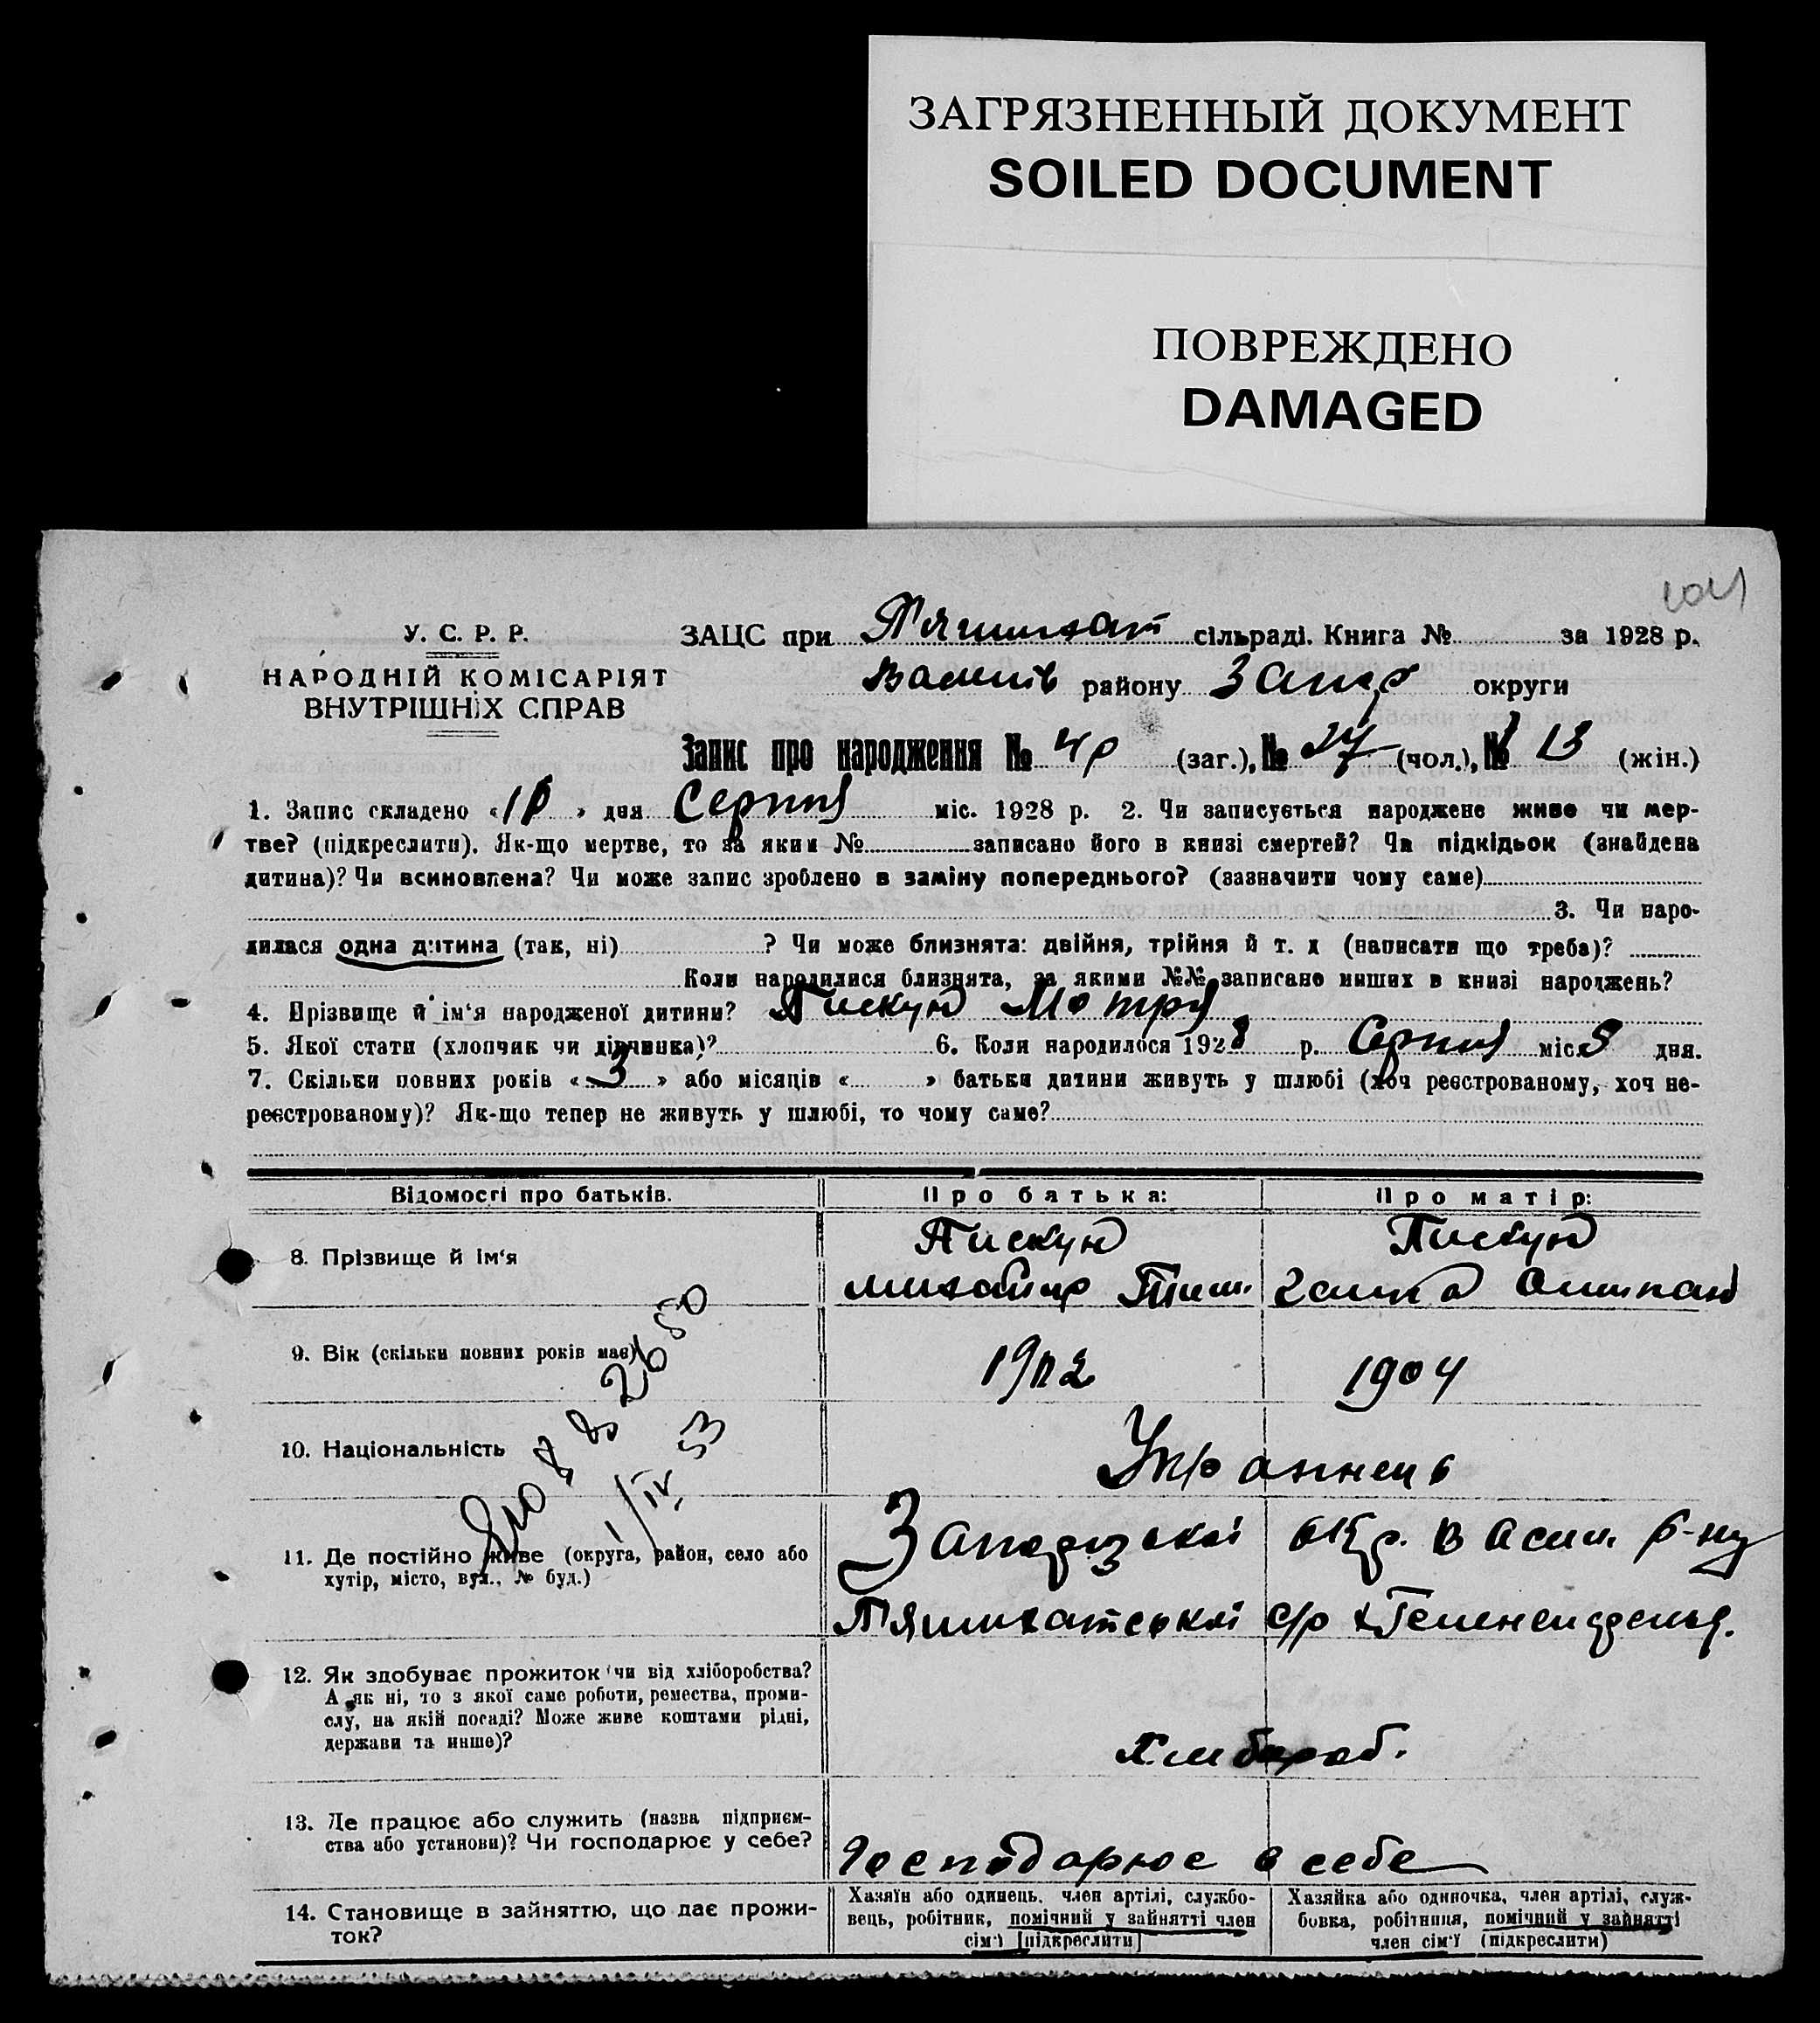 ЗАГРЯЗНЕННЫЙ ДОКУМЕНТ
SOILED DOCUMENT
ПОВРЕЖДЕНО
DAMAGED
У. С. Р. Р.
НАРОДНІЙ КОМІСАРІЯТ
ВНУТРІШНІХ СПРАВ
ЗАЦС при П'ятихат сільраді. Книга № за 1928 р.
району Запор округи
Запис про народження № 40 (заг.), № 27 (чол.), № 13 (жін.)
1. Запис складено «10» дня Серпня міс. 1928 р. 2. Чи записується народжене живе чи мер-
тве? (підкреслити). Як-що мертве, то за яким № записано його в книзі смертей? Чи підкідьок (знайдена
дитина)? Чи всиновлена? Чи може запис зроблено в заміну попереднього? (зазначити чому саме)
3. Чи наро-
дилася одна дитина (так, ні) ? Чи може близнята: двійня, трійня й т. д (написати що треба)?
Коли народилися близнята, за якими №№ записано инших в книзі народжень?
4. Прізвище й ім'я народженої дитини? Пискун Мотря
5. Якої стати (хлопчик чи дівчинка)? 6. Коли народилося 1928 р. Серпня міс. 8 дня.
7. Скільки повних років «3» або місяців « » батьки дитини живуть у шлюбі (хоч реєстрованому, хоч не-
реєстрованому)? Як-що тепер не живуть у шлюбі, то чому саме?
Відомості про батьків. Про батька: Про матір:
8. Прізвище й ім'я Пискун Пискун
9. Вік (скільки повних років має) 1902 1904
10. Національність Українець
11. Де постійно живе (округа, район, село або
хутір, місто, вул., № буд.)
Запорізської окр. Васил. р-ну
П'ятихатської с/р
12. Як здобуває прожиток чи від хліборобства?
А як ні, то з якої саме роботи, ремества, проми-
слу, на якій посаді? Може живе коштами рідні,
держави та инше)?
Хлібороб.
13. Де працює або служить (назва підприєм-
ства або установи)? Чи господарює у себе?
Господарює в себе
14. Становище в зайняттю, що дає прожи-
ток?
Хазяїн або одинець, член артілі, службо-
вець, робітник, помічний у зайнятті член
сім'ї [підкреслити]
Хазяйка або одиночка, член артілі, служ-
бовка, робітниця, помічний у зайнятті
член сім'ї (підкреслити)